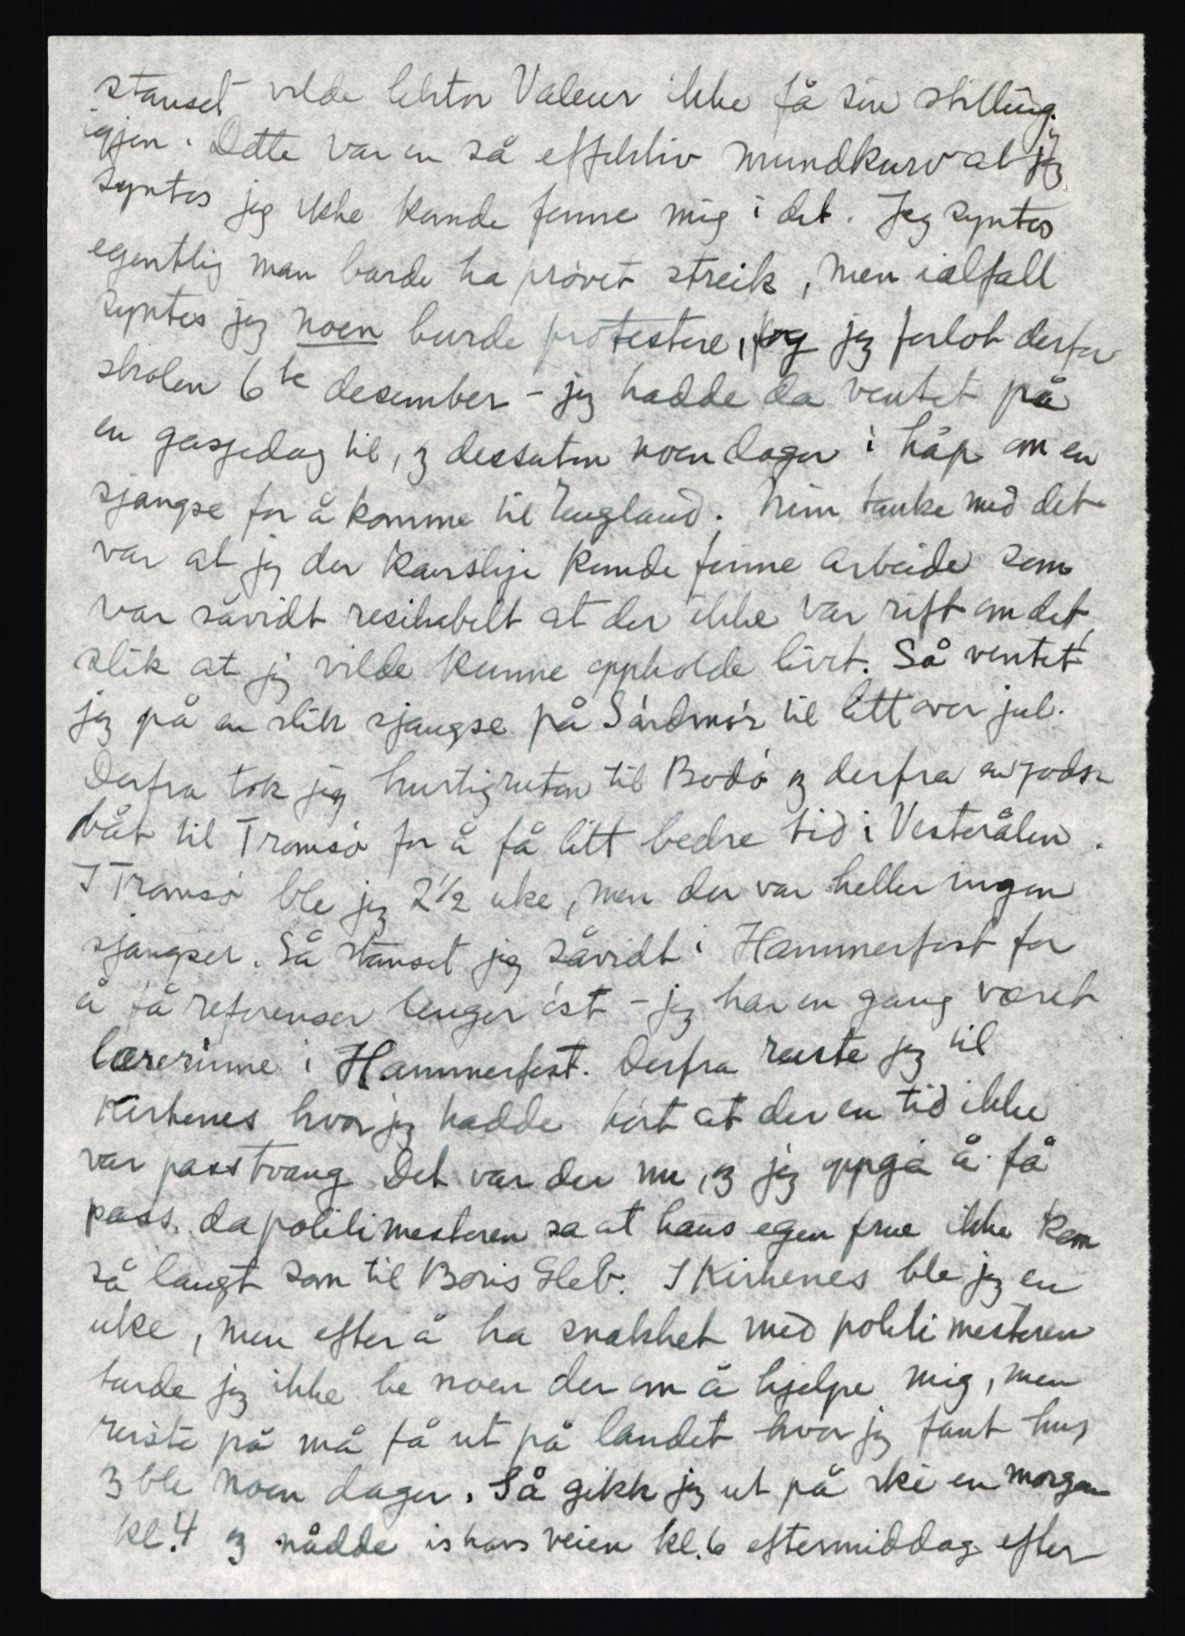 stanset vilde lektor Valeur ikke få sin stilling
igjen. Dette var en så effektiv mundkurv at jeg
syntes jeg ikke kunde finne mig i det. Jeg syntes
egentlig man burde ha prøvet streik, men ialfall
syntes jeg noen burde protestere, og jeg forlot derfor
skolen 6te desember - jeg hadde da ventet på
en gasjedag til, og dessuten noen dager i håp om en
sjangse for å komme til England. Min tanke med det
var at jeg der kanskje kunde finne arbeide som
var såvidt resikabelt at der ikke var rift om det,
slik at jeg vilde kunne oppholde livet. Så ventet
jeg på en slik sjangse på Sørdmør til litt over jul.
Derfra tok jeg hurtigruten til Bodø og derfra en gods-
båt til Tromsø for å få litt bedre tid i Vesterålen.
I Tromsø ble jeg 2½ uke, men der var heller ingen
sjangser. Så stanset jeg såvidt i Hammerfest for
å få referenser lenger øst - jeg har en gang været
lærerinne i Hammerfest. Derfra reiste jeg til
Kirkenes hvor jeg hadde hørt at der en tid ikke
var passtvang. Det var der nu, og jeg oppga å få
pass, da politimesteren sa at hans egen frue ikke kom
så langt som til Boris Gleb. I Kirkenes ble jeg en
uke, men efter å ha snakket med politimesteren
turde jeg ikke be noen der om å hjelpe mig, men
reiste på må få ut på landet hvor jeg fant hus
og ble noen dager. Så gikk jeg ut på ski en morgen
kl. 4 og nådde ishavsveien kl. 6 eftermiddag efter